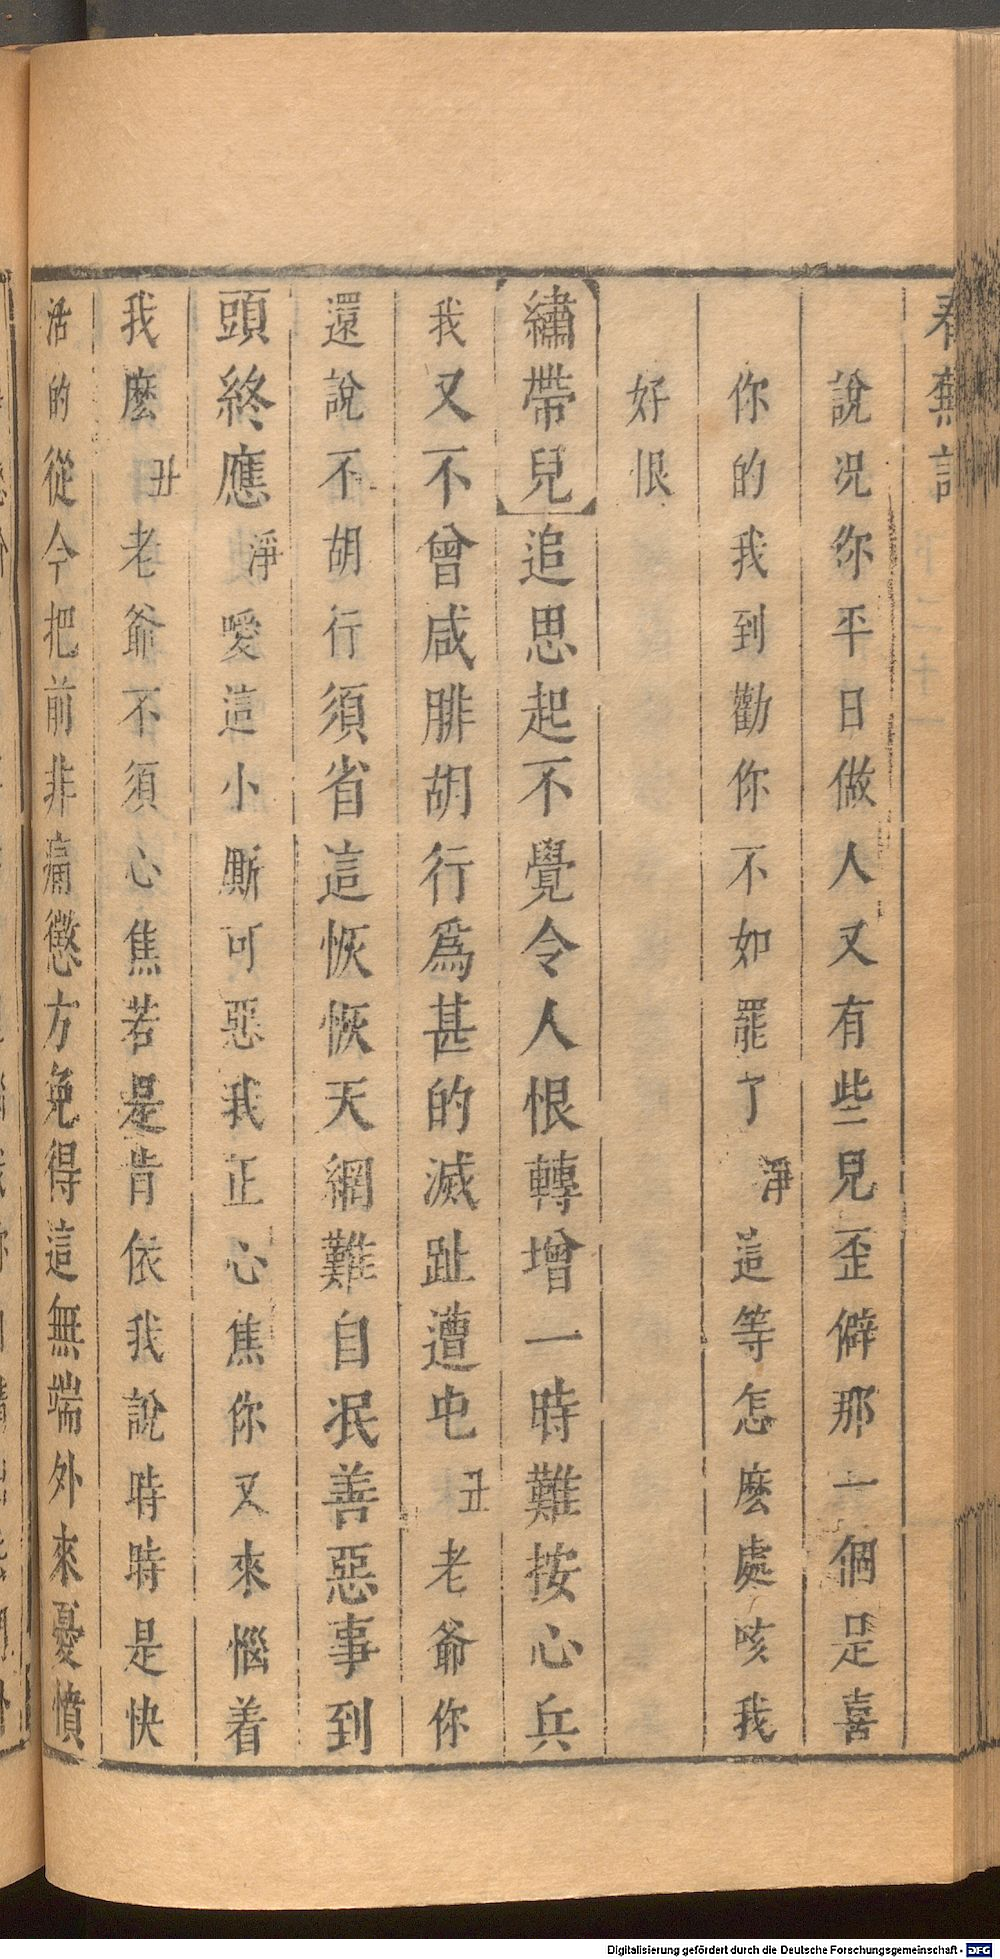 春蕪記
說况你平日做人又有些兒歪僻那一個是喜
你的我到勸你不如罷了淨這等怎麽處咳我
好恨
繡帶兒追思起不覺令人恨轉增一時難按心兵
我又不曾咸腓胡行爲甚的滅趾遭屯丑老爺你
還說不胡行須省這恢恢天網難自泯善惡事到
頭終應淨噯這小厮可惡我正心焦你又來惱着
我麽丑老爺不須心焦若是肯依我說時時是快
活的從今把前非痛懲方免得這無端外來憂憤
Digitalisierung gefördert durch die Deutsche Forschungsgemeinschaft - DFG